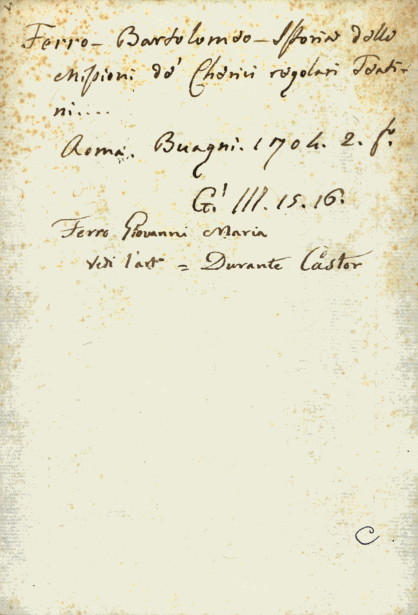 Ferro - Bartolomeo - Istoria delle
Missioni de' Cherici regolari Teati-
ni....
Roma. Buagni. 1704. 2. f.º
G.' III. 15. 16.
Ferro Giovanni Maria
Vedi l'art.º = Durante Castor
C